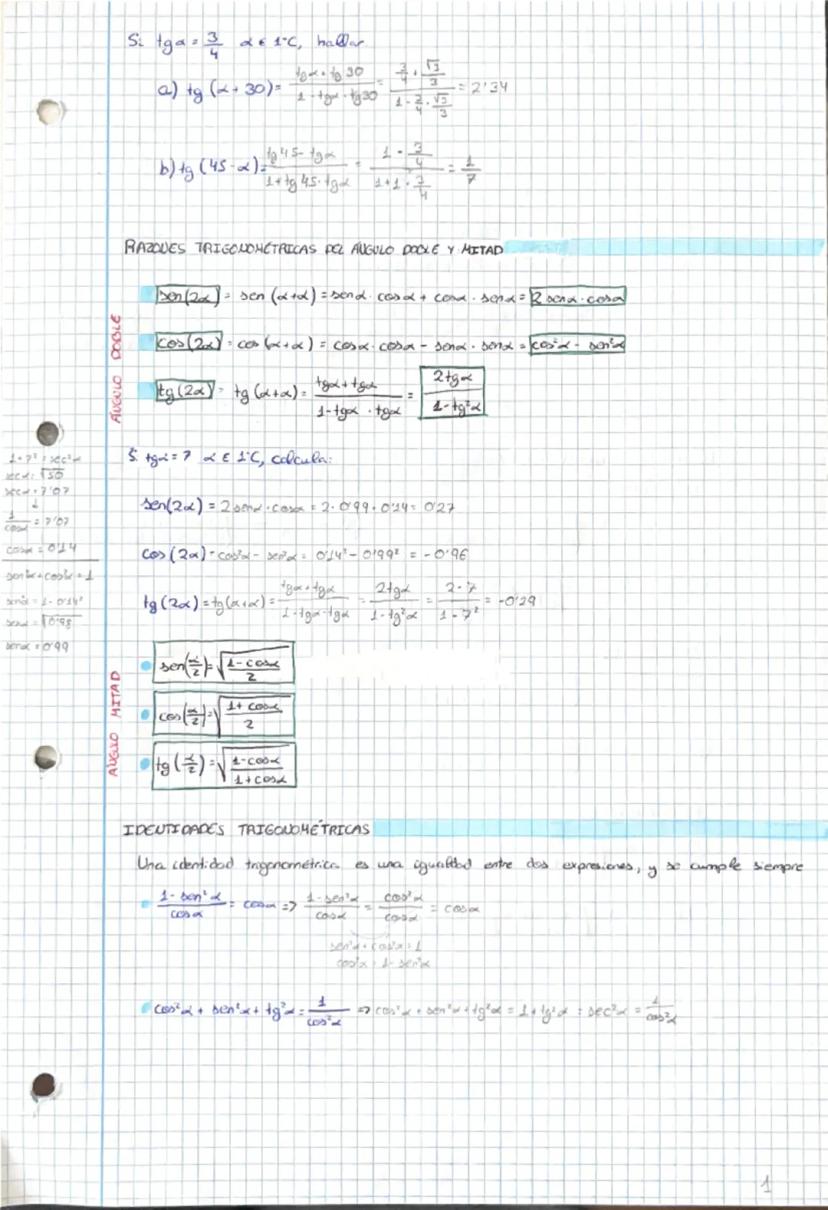 Si tgα = 3/4 α ∈ 1ºC, hallar
a) tg (α + 30) = (tgα + tg 30)/(1 - tgα · tg30) = (3/4 + √3/3)/(1 - 3/4 · √3/3) = 2'34
b) tg (45 - α) = (tg 45 - tgα)/(1 + tg 45 · tgα) = (1 - 3/4)/(1 + 1 · 3/4) = 1/7
RAZONES TRIGONOMÉTRICAS DEL ÁNGULO DOBLE Y MITAD
ÁNGULO DOBLE
sen(2α) = sen (α+α) = senα · cosα + cosα · senα = 2 senα · cosα
cos(2α) = cos (α+α) = cosα · cosα - senα · senα = cos²α - sen²α
tg(2α) = tg (α+α) = (tgα + tgα)/(1 - tgα · tgα) = 2tgα/(1 - tg²α)
Si tgα = 7 α ∈ 1ºC, calcula:
sen(2α) = 2 senα · cosα = 2 · 0'99 · 0'14 = 0'27
cos (2α) = cos²α - sen²α = 0'14² - 0'99² = -0'96
tg (2α) = tg(α+α) = (tgα + tgα)/(1 - tgα · tgα) = 2tgα/(1 - tg²α) = 2·7/(1 - 7²) = -0'29
1+7² = sec²α
secα = √50
secα = 7'07
↓
1/cosα = 7'07
cosα = 0'14
sen²α + cos²α = 1
sen²α = 1 - 0'14²
senα = √0'98
senα = 0'99
ÁNGULO MITAD
sen(α/2) = √((1 - cosα)/2)
cos(α/2) = √((1 + cosα)/2)
tg(α/2) = √((1 - cosα)/(1 + cosα))
IDENTIDADES TRIGONOMÉTRICAS
Una identidad trigonométrica es una igualdad entre dos expresiones, y se cumple siempre
(1 - sen²α)/cosα = cosα => (1 - sen²α)/cosα = cos²α/cosα = cosα
sen²α + cos²α = 1
cos²α = 1 - sen²α
cos²α + sen²α + tg²α = 1/cos²α => cos²α + sen²α + tg²α = 1 + tg²α = sec²α = 1/cos²α
1